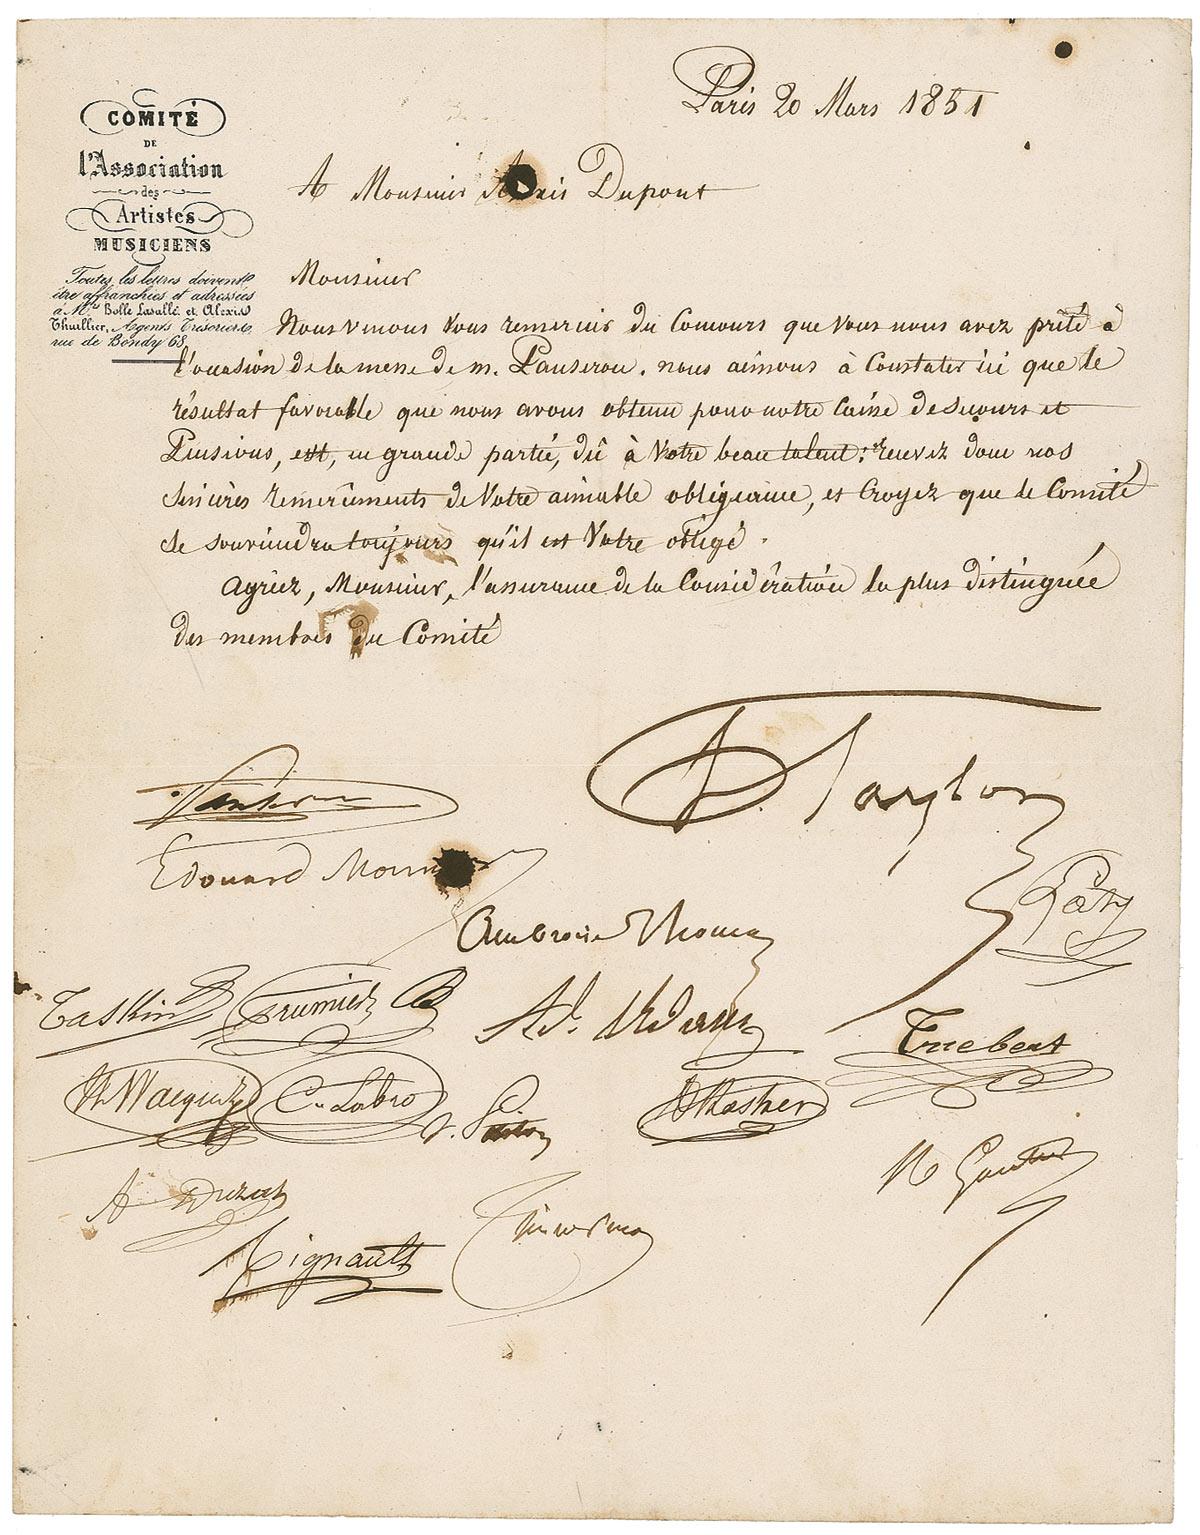 COMITÉ
DE
l'Association
des
Artistes
MUSICIENS
Toutes les lettres doivent
être affranchies et adressées
à Mrs Bolle Lasalle et Alexis
Thuillier, Agents Trésoriers,
rue de Bondy 68
Paris 20 Mars 1851
A Monsieur Dupont
Monsieur
Nous venons vous remercier du Concours que vous nous avez prêté à
l'occasion de la messe de m. Panseron. nous aimons à Constater ici que le
résultat favorable que nous avons obtenu pour notre Caisse de Secours et
Pensions, est, en grande partie, dû à Votre beau talent: recevez donc nos
Sincères remercîments de Votre aimable obligeance, et Croyez que le Comité
Se souviendra toujours qu'il est Votre obligé.
Agréez, Monsieur, l'assurance de la Considération la plus distinguée
des membres du Comité
B. Taylor
Panseron
Edouard
Ambroise Thomas
Taskin
Prumier
Ad. Adam
Triebert
C. Labro
A
Tignault